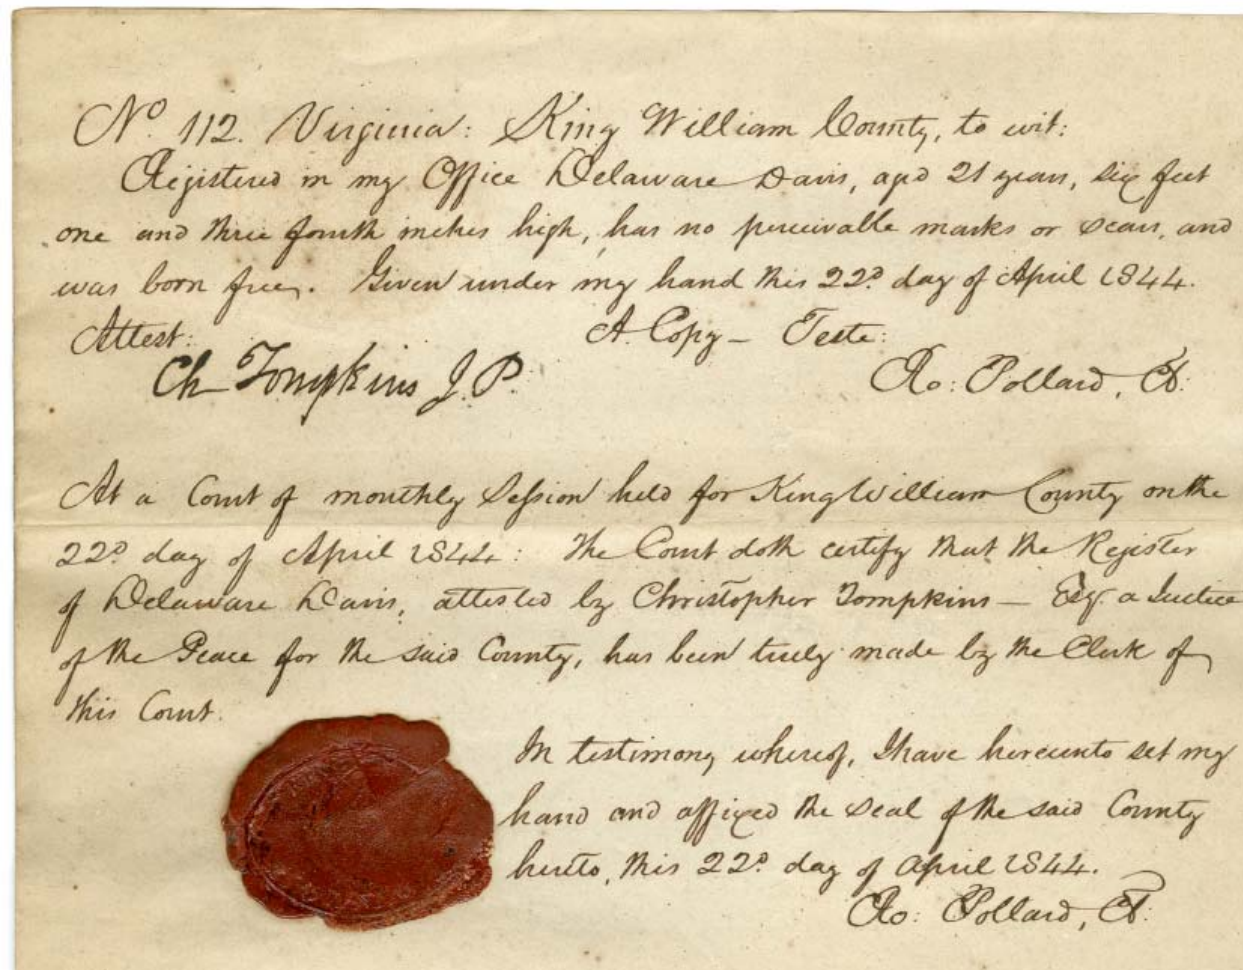 No. 112. Virginia: King William County, to wit:
Registered in my Office Delaware Davis, aged 21 years, six feet
one and three fourth inches high, has no perceivable marks or scars, and
was born free. Given under my hand this 22d day of April 1844.
Attest: A Copy – Teste:
Ch Tompkins J.P. Ro: Pollard, Cl.
At a Court of monthly Session held for King William County on the
22d day of April 1844: The Court doth certify that the Register
of Delaware Davis, attested by Christopher Tompkins – Esq. a Justice
of the Peace for the said County, has been truly made by the Clerk of
this Court.
In testimony whereof, I have hereunto set my
hand and affixed the seal of the said County
hereto, this 22d day of April 1844.
Ro: Pollard, Cl.